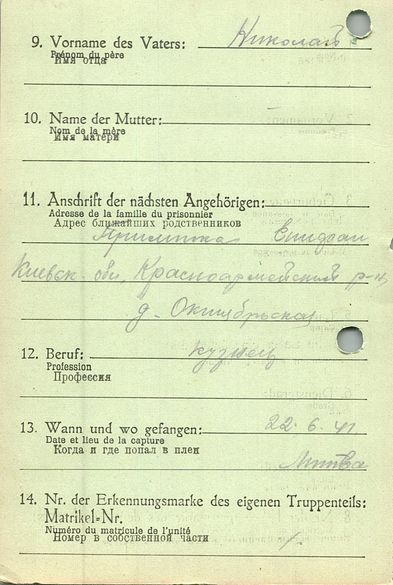 9. Vorname des Vaters: Николай
Prénom du père
Имя отца
10. Name der Mutter:
Nom de la mère
Имя матери
11. Anschrift der nächsten Angehörigen:
Adresse de la famille du prisonnier
Адрес ближайших родственников
Киевск. обл, Красноармейский р-н,
д. Октябрьская
12. Beruf: кузнец
Profession
Профессия
13. Wann und wo gefangen: 22.6.41
Date et lieu de la capture
Когда и где попал в плен
Литва
14. Nr. der Erkennungsmarke des eigenen Truppenteils:
Matrikel-Nr.
Numéro du matricule de l'unité
Номер в собственной части